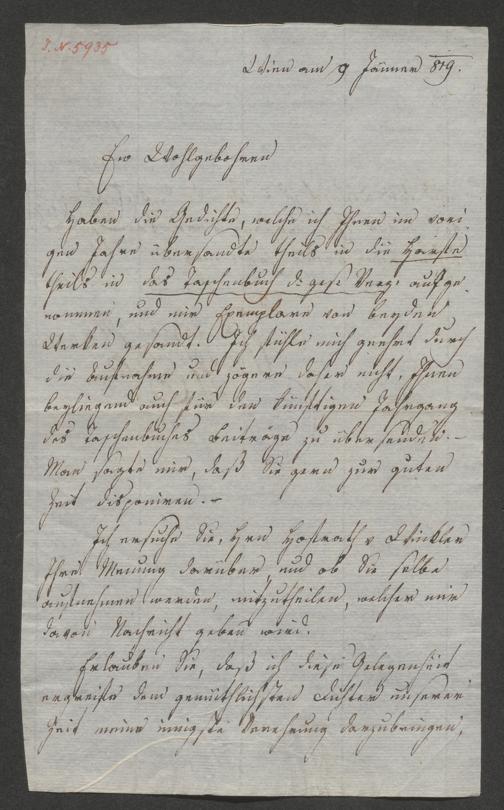 I. N. 5935
Wien am 9 Jänner 819.
Euer Wohlgebohren
Haben die Gedichte, welche ich Ihnen im vori-
gen Jahre übersandte theils in die Harfe
theils in das Taschenbuch d. gesel. Verg. aufge-
nommen, und mir Exemplare von beyden
Werken gesandt. Ich fühle mich geehrt durch
die Aufnahme und zögere daher nicht, Ihnen
beyliegend auch für den künftigen Jahrgang
des Taschenbuches Beiträge zu übersenden. –
Man sagte mir, daß Sie gern zur guten
Zeit disponiren. –
Ich ersuche Sie, Hrn Hofrath v Winkler
Ihre Meinung darüber und ob Sie selbe
aufnehmen werden, mitzutheilen, welcher mir
davon Nachricht geben wird.
Erlauben Sie, daß ich diese Gelegenheit
ergreife dem gemüthlichsten Dichter unserer
Zeit meine innigste Verehrung darzubringen,